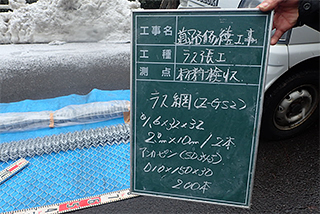 工事名 道路修繕工事
工種 ラス張工
測点 材料検収
ラス網(Z-GS2)
2.0m×10m/2本
アンカーピン(SD345)
D10×150×30
200本